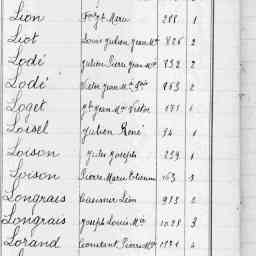 Lion Marie 288 1
Liot Louis Julien Jean Mie 826 2
Lodé Julien Pierre Jean Mie 832 2
Lodé Victor Jean Mie 863 2
Loget Jh Jean Mie Victor 1
Loisel Julien René 34 1
Loison Jules Joseph 239 1
Loison Pierre Marie Etienne 163
Longrais Casimir Léon 983 2
Longrais Joseph Louis Mie 1028 3
Lorand Constant Pierre Mie 4